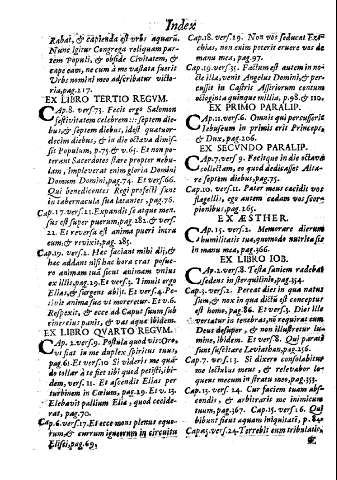 Index
Rabat, & capienda est urbs aquarū.
Nunc igitur Congrega reliquam par-
tem Populi, & obside Civitatem, &
cape eam, ne cum à me vastata fuerit
Urbs nomini meo adscribatur victo-
ria, pag. 217.
EX LIBRO TERTIO REGVM.
CAp. 8. vers. 73. Fecit ergo Salomon
festivitatem celebrem:::septem die-
bus, & septem diebus, id est quatuor-
decim diebus, & in die octava dimis-
sit Populum, p. 75. & 65. Et non po-
terant Sacerdotes stare propter nebu-
lam, impleverat enim gloria Domini
Domum Domini, pag. 74. Et vers. 66.
Qui benedicentes Regi profecti sunt
in tabernacula sua lætantes, pag. 76.
Cap. 17. vers. 21. Expandit se atque men-
sus est super puerum, pag. 281. & vers.
22. Et reversa est anima pueri intra
eum, & revixit, pag. 285.
Cap. 19. vers. 2. Hæc faciant mihi dij, &
hæc addant nisi hac hora cras posue-
ro animam tuā sicut animam vnius
ex illis, pag. 29. Et vers. 3. Timuit ergo
Elias, & surgens abijt. Et vers. 4. Pe-
tivit animæ suæ vt moreretur. Et v. 6.
Respexit, & ecce ad Caput suum sub
cinericius panis, & vas aquæ ibidem.
EX LIBRO QVARTO REGVM.
CAp. 2. vers. 9. Postula quod vis: Oro,
vt fiat in me duplex spiritus tuus,
pag. 61. Et vers. 10. Si videris me quā-
do tollar à te fiet tibi quod petisti, ibi-
dem, vers. 11. Et ascendit Elias per
turbinem in Cœlum, pag. 29. Et v. 13.
Elebavit pallium Eliæ, quod cecide-
rat, pag. 70.
Cap. 6. vers. 17. Et ecce mons plenus equo-
rum, & currum igneorum in circuitu
Elisei, pag. 69.
Cap. 18. vers. 29. Non vos seducat Eze-
chias, non enim poterit eruere vos de
manu mea, pag. 97.
Cap. 19. vers. 35. Factum est autem in no-
cte illa, venit Angelus Domini, & per-
cussit in Castris Assiriorum centum
octoginta quinque millia, p. 98. & 110.
EX PRIMO PARALIP.
CAp. 11. vers. 6. Omnis qui percusserit
Iebuseum in primis erit Princeps,
& Dux, pag. 206.
EX SECVNDO PARALIP.
CAp. 7. vers. 9. Fecitque in die octava
collectam, eo quod dedicasset Alta-
re septem diebus, pag. 75.
Cap. 10. vers. 11. Pater meus cæcidit vos
flagellis, ego autem cædam vos scor-
pionibus, pag. 265.
EX ÆSTHER.
CAp. 15. vers. 2. Memorare dierum
humilitatis tuæ, quomodo nutrita sis
in manu mea, pag. 366.
EX LIBRO IOB.
CAp. 2. vers. 8. Testa saniem radebat
sedens in sterquilinio, pag. 354.
Cap. 3. vers. 2. Pereat dies in qua natus
sum, & nox in qua dictū est conceptus
est homo, pag. 86. Et vers. 5. Dies ille
vertatur in tenebras, nō requirat eum
Deus desuper, & non illustretur lu-
mine, ibidem. Et vers. 8. Qui parati
sunt suscitare Leviathan, pag. 256.
Cap. 7. vers. 13. Si dixero consolabitur
me lectulus meus, & relevabor lo-
quens mecum in strato meo, pag. 353.
Cap. 13. vers. 24. Cur faciem tuam abs-
condis, & arbitraris me inimicum
tuum, pag. 367. Cap. 15. vers. 16. Qui
bibunt sicut aquam iniquitatē, p. 84.
Cap. 15. vers. 24. Terrebit eum tribulatio,
&